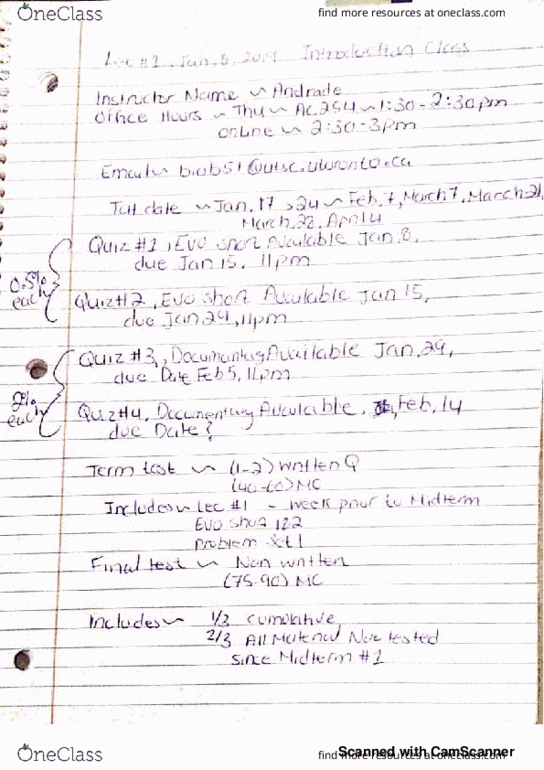 OneClass
find more resources at oneclass.com
Lec #1, Jan, 8, 2019 Introduction Class
Instructor Name ~ Andrade
Office Hours ~ Thu ~ AC 254 ~ 1:30-2:30pm
online ~ 2:30-3pm
Email ~ biob51@utsc.utoronto.ca
Tut date ~ Jan, 17, 24 ~ Feb, 7, March 7, March 21,
March, 28, April 4
Quiz #1, Evo short Available Jan, 8,
due Jan 15, 11pm
0.5% each
Quiz #2, Evo short Available Jan 15,
due Jan 29, 11pm
Quiz #3, Documentary Available Jan, 29,
due Date Feb 5, 11pm
2% each
Quiz #4, Documentary Available, Feb, 14
due Date?
Term test ~ (1-2) written Q
(40-60) MC
Includes ~ Lec #1 - week prior to Midterm
Evo short 1&2
Problem set 1
Final test ~ Non written
(75-90) MC
Includes ~ 1/3 Cumulative,
2/3 All Material Not tested
since Midterm #1
OneClass
find more resources at oneclass.com
Scanned with CamScanner